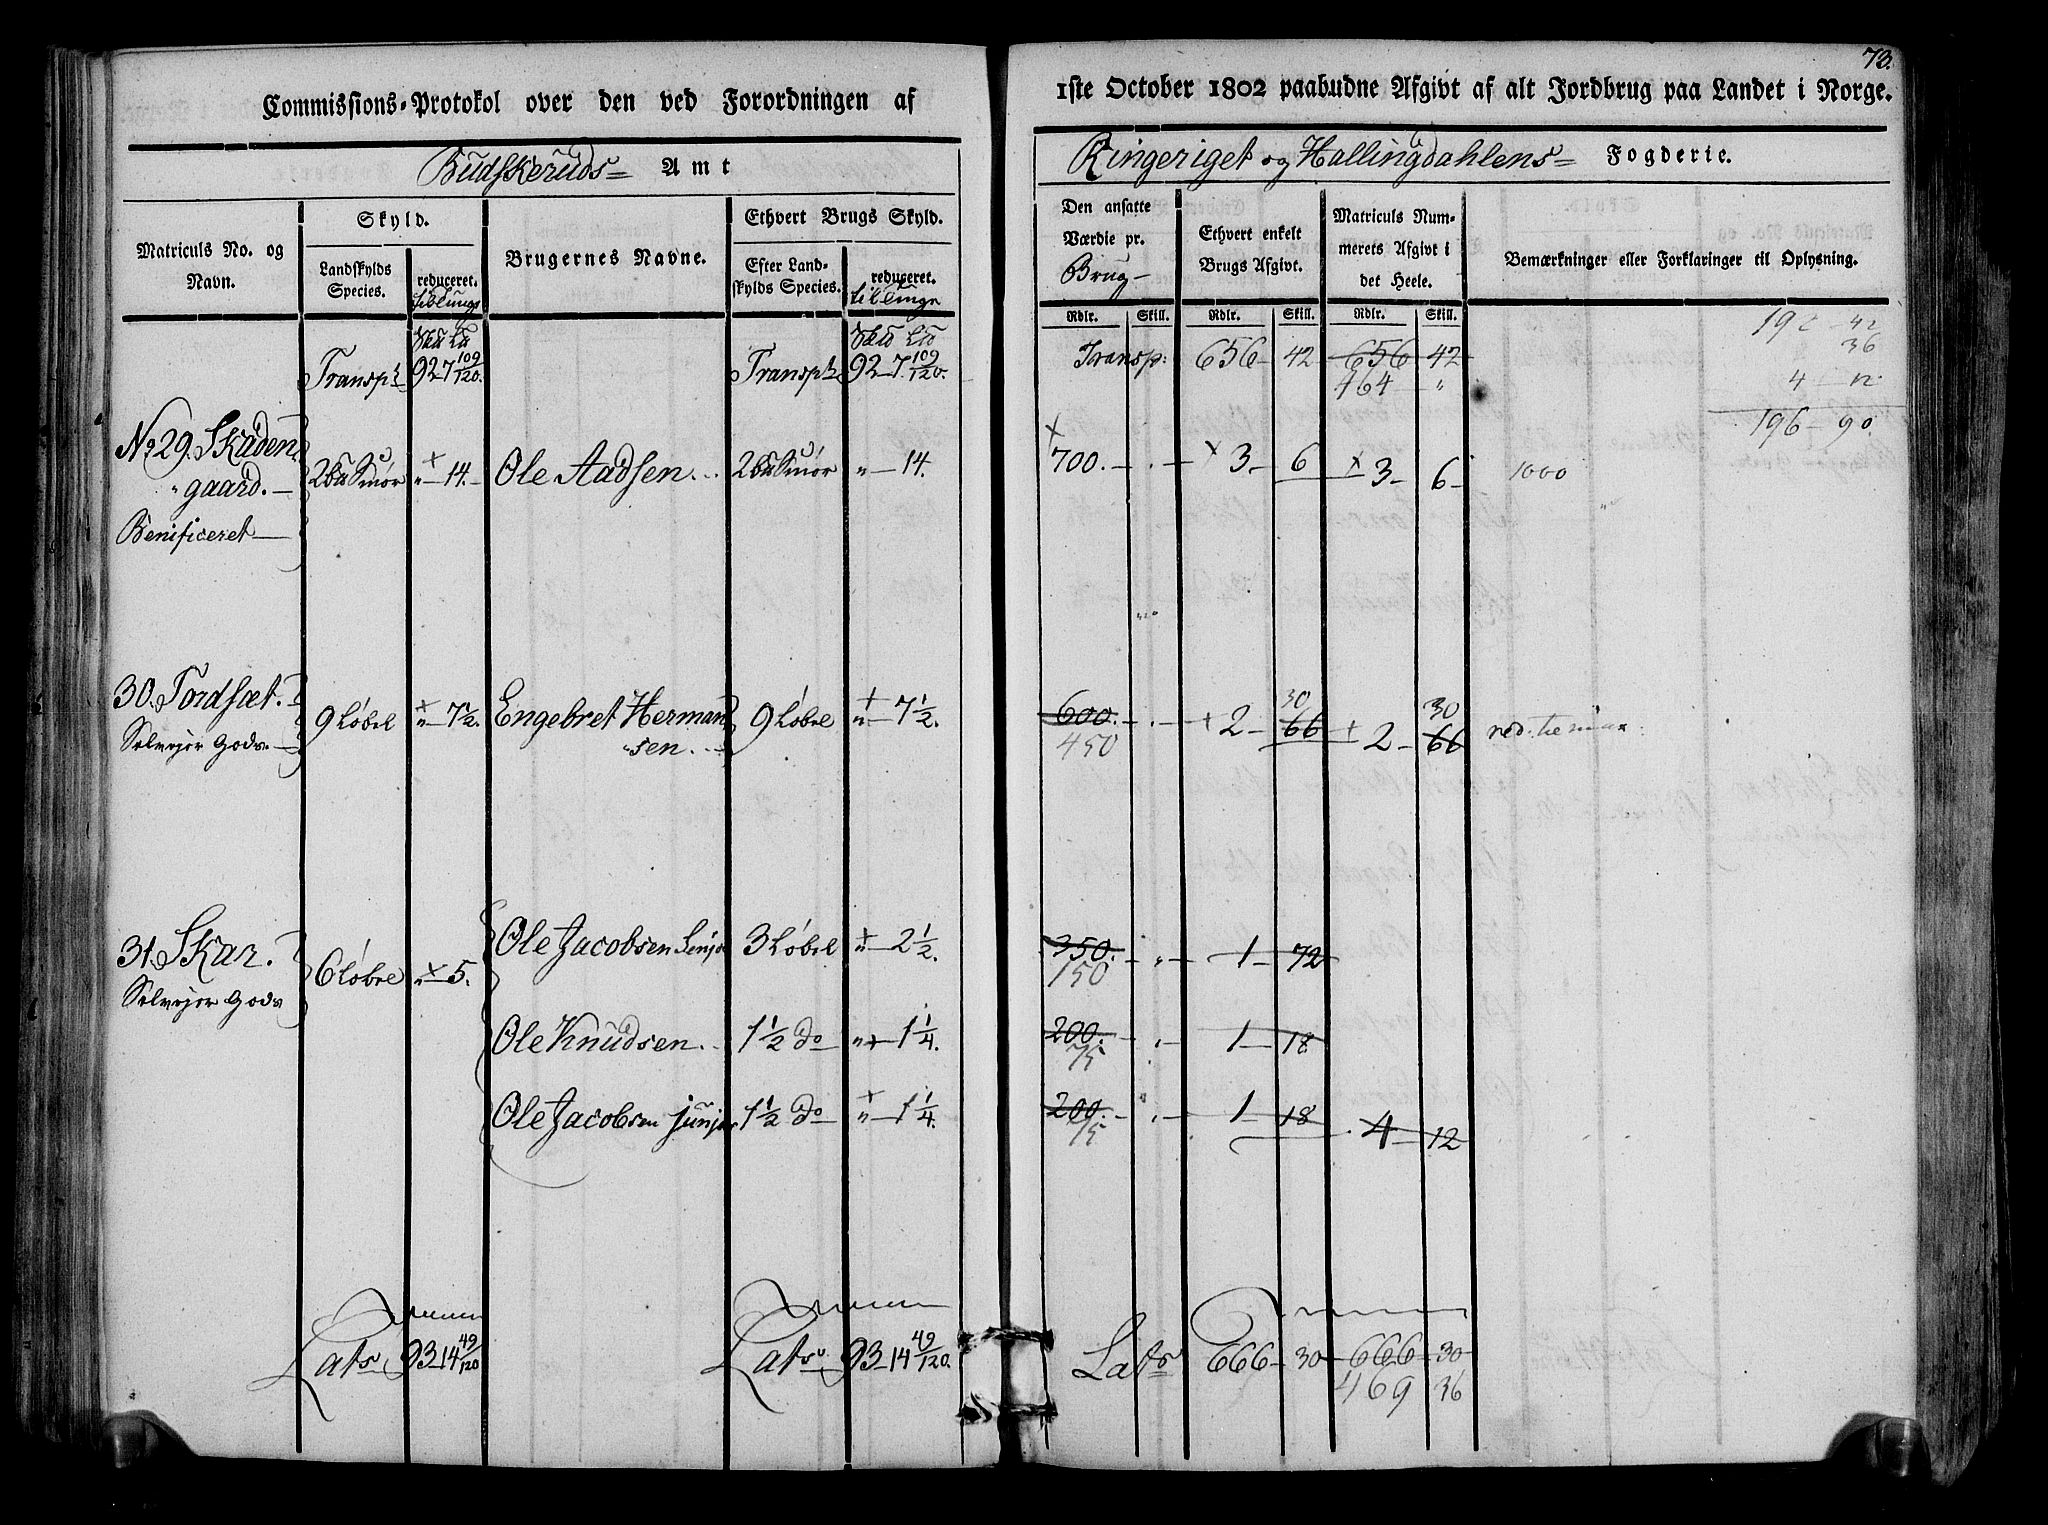 73.
Commissions-Protokol over den ved Forordningen af
1ste October 1802 paabudne Afgivt af alt Jordbrug paa Landet i Norge.
Budskeruds Amt
Ringeriget og Hallingdahlens Fogderie.
Matriculs No. og Navn.
Skyld.
Landskylds Species.
reduceret.
Brugernes Navne.
Ethvert Brugs Skyld.
Efter Landskylds Species.
reduceret. til Tunge
Den ansatte Værdie pr. Brug
Ethvert enkelt Brugs Afgivt.
Matriculs Nummerets Afgivt i det Heele.
Bemærkninger eller Forklaringer til Oplysning.
Rdlr. Skill. Rdlr. Skill. Rdlr. Skill.
Transpt 92 7 109/120. Transpt 92 7 109/120. Transp: 656 42 656 42
464 "
192 42
36
4 12
196 90
No 29. Skaden gaard. 2 Smør " 14. Ole Aadsen 2 Smør " 14. 700. 3 6 3 6 1000
Benificeret
30. Tordsæt. 9 Løbel " 7½. Engebret Hermansen 9 Løbel " 7½. 600. 2 66 2 66
30 30
450
Selvejer Gods
31. Skar. 6 Løbel " 5. Ole Jacobsen Senjor 3 Løbel " 2½. 350. 1 72
150
Selvejer Gods
Ole Knudsen 1½ Do " 1¼. 200. 1 18
75
Ole Jacobsen junjor 1½ Do " 1¼. 200. 1 18 4 12
75
Lats 93 14 49/120 Lats 93 14 49/120. Lats 666 30 666 30
469 36